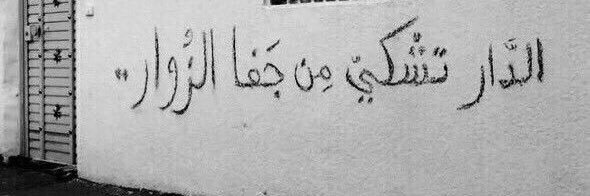 الدَّار تشّكيّ مِن جَفا الزُوار ..